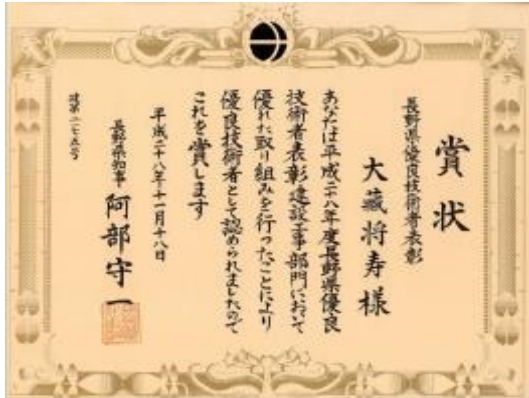 賞状
長野県優良技術者表彰
大蔵将寿様
あなたは平成二十八年度長野県優良
技術者表彰建設工事部門において
優れた取り組みを行ったことにより
優良技術者として認められましたので
これを賞します
平成二十八年十一月十八日
長野県知事 阿部守一